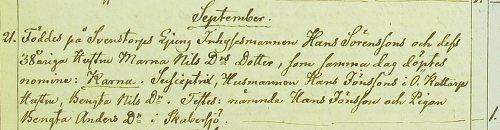 September.
21. Föddes på Svenstorps Ljung Inhysesmannen Hans Sörenssons och dess
38åriga Hustru Marna Nils Drs Dotter, som samma dag döptes
nomine: Karna. Susceptrix, Husmannen Hans Jönssons i O. Kattarp
Hustru, Bengta Nils Dr. Testes: nämnda Hans Jönsson och Pigan
Bengta Anders Dr i Skabersjö.
1.